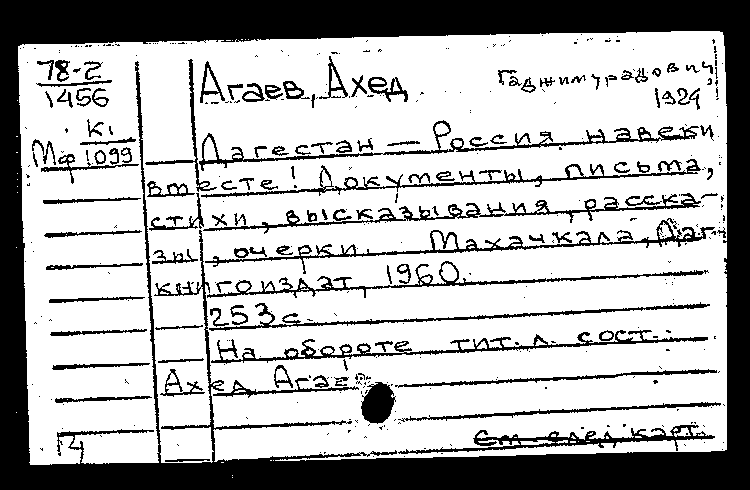 78-2
1456
К1
Мф 1099
Агаев, Ахед Гаджимурадович,
1924
Дагестан — Россия навеки
вместе! Документы, письма,
стихи, высказывания, расска-
зы, очерки. Махачкала, Даг-
книгоиздат, 1960.
253 с.
На обороте тит. л. сост.:
Ахед Агаев
См. след. карт.
14